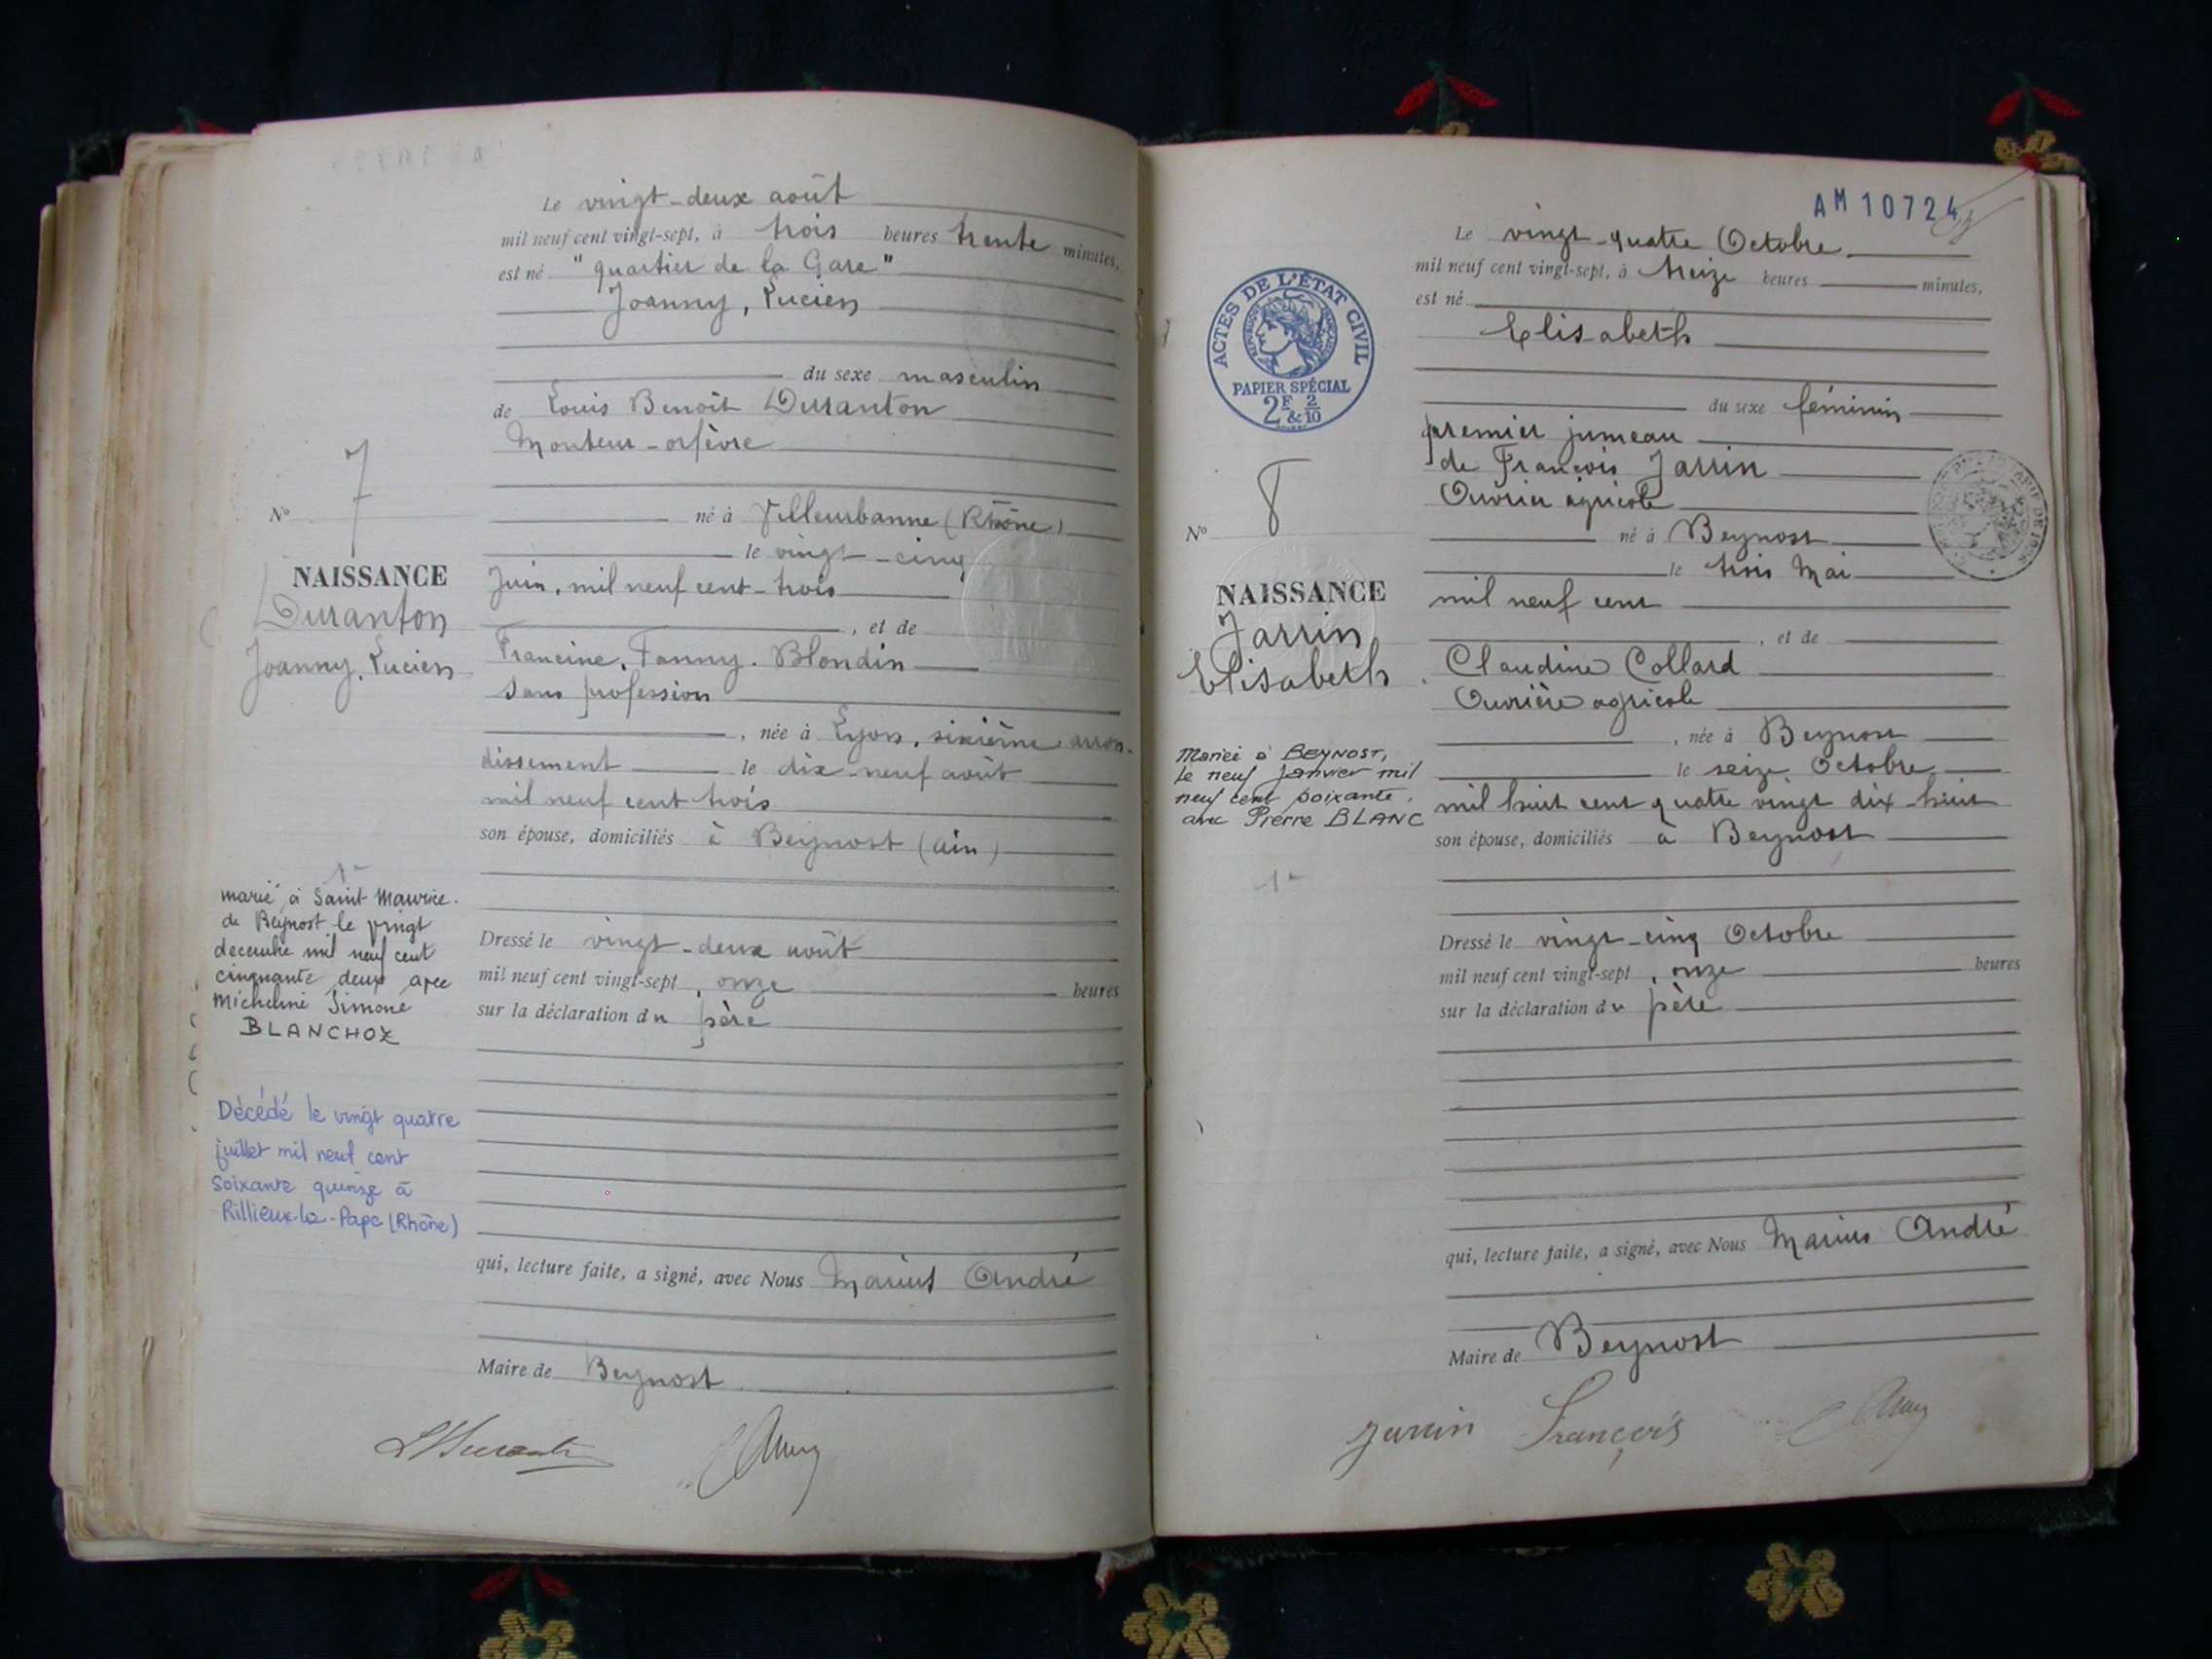 Le vingt-deux août
mil neuf cent vingt-sept, à trois heures trente minutes,
est né "quartier de la Gare"
Joanny, Lucien
du sexe masculin
de Louis Benoît Duranton
Monteur-orfèvre
né à Villeurbanne (Rhône)
le vingt-cinq
Juin, mil neuf cent-trois
, et de
Francine, Fanny. Blondin
sans profession
, née à Lyon, sixième arron-
dissement le dix-neuf août
mil neuf cent trois
son épouse, domiciliés à Beynost (ain)
Dressé le vingt-deux août
mil neuf cent vingt-sept, onze heures
sur la déclaration du père
qui, lecture faite, a signé, avec Nous Marius André
Maire de Beynost
N° 7
NAISSANCE
Duranton
Joanny, Lucien
1
marié à Saint Maurice.
de Beynost le vingt
decembre mil neuf cent
cinquante deux avec
Micheline Simone
BLANCHOZ
Décédé le vingt quatre
juillet mil neuf cent
soixante quinze à
Rillieux-la-Pape (Rhône)
AM 10724
Le vingt-quatre Octobre
mil neuf cent vingt-sept, à treize heures minutes,
est né
Elisabeth
du sexe féminin
premier jumeau
de François Jarrin
Ouvrier agricole
né à Beynost
le trois Mai
mil neuf cent
, et de
Claudine Collard
Ouvrière agricole
, née à Beynost
le seize Octobre
mil huit cent quatre vingt dix-huit
son épouse, domiciliés à Beynost
Dressé le vingt-cinq Octobre
mil neuf cent vingt-sept, onze heures
sur la déclaration du père
qui, lecture faite, a signé, avec Nous Marius André
Maire de Beynost
Jarrin François
ACTES DE L'ÉTAT CIVIL
RÉPUBLIQUE FRANÇAISE
PAPIER SPÉCIAL
2F & 2/10
N° 8
NAISSANCE
Jarrin
Elisabeth
Mariée à BEYNOST,
le neuf janvier mil
neuf cent soixante,
avec Pierre BLANC
1